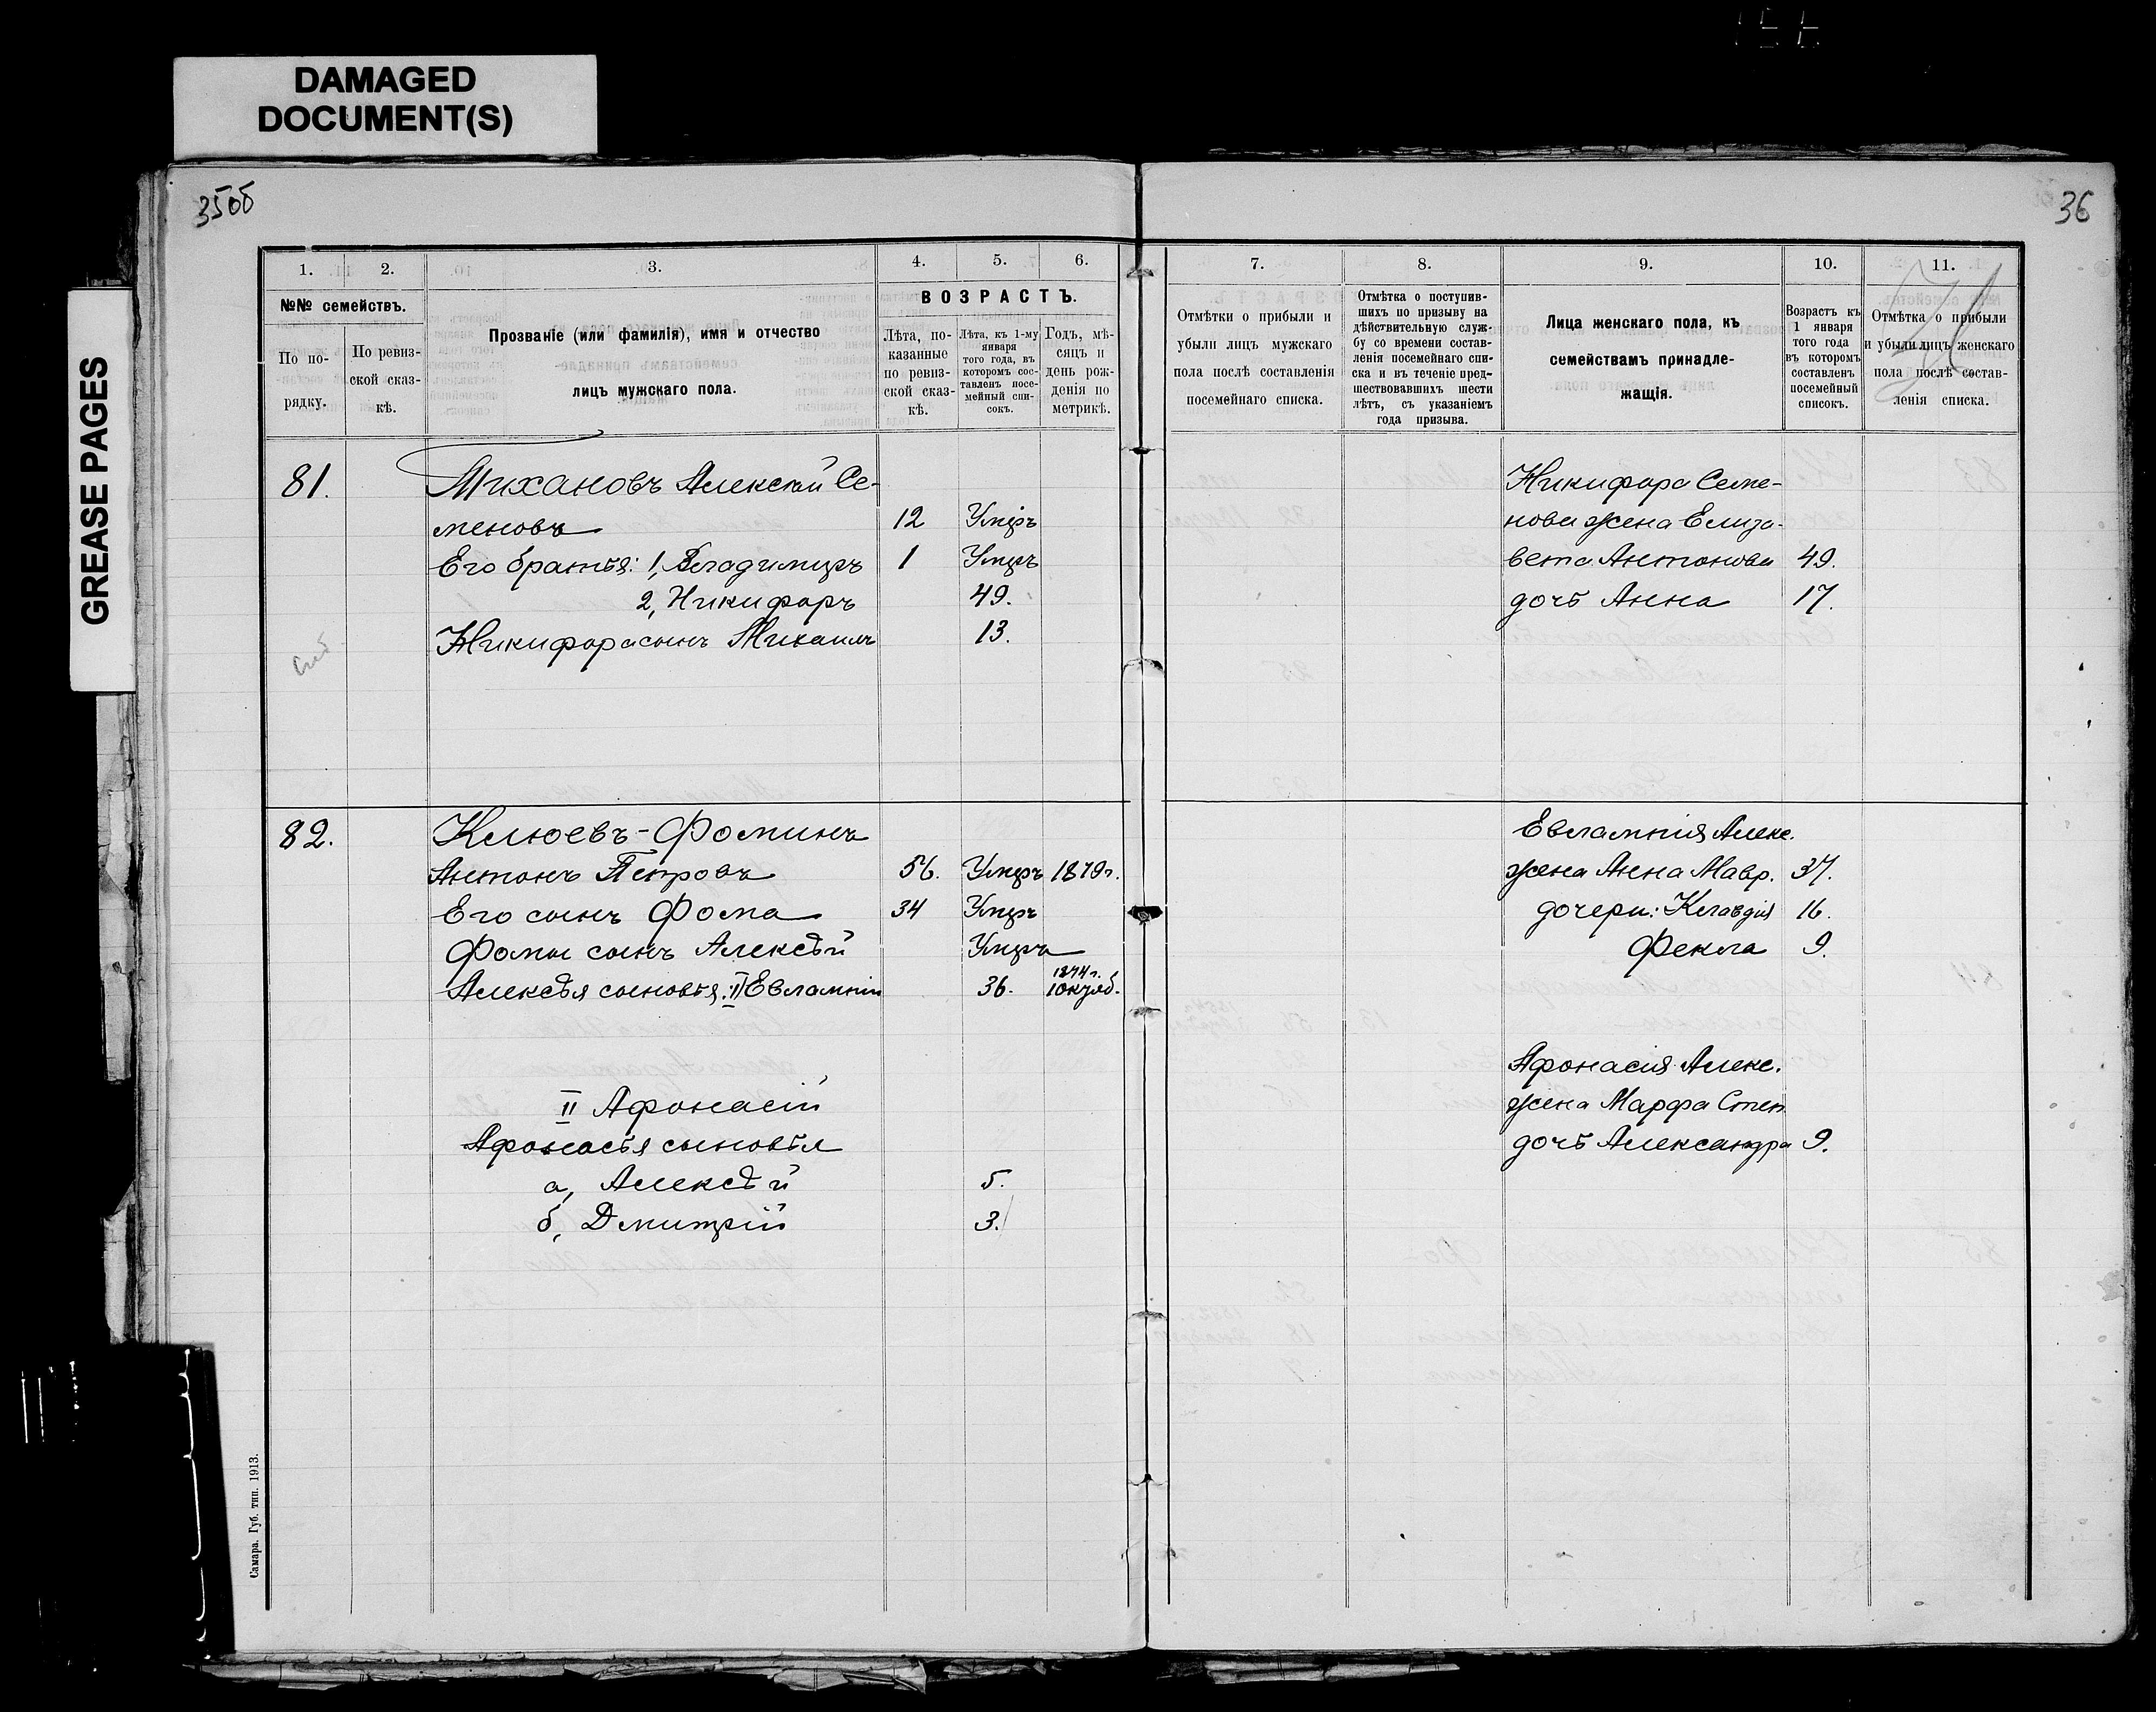 DAMAGED
DOCUMENT(S)
GREASE PAGES
35об
36
1. 2. 3. 4. 5. 6.
№№ семействъ.
По по-
рядку.
По ревиз-
ской сказ-
кѣ.
Прозваніе (или фамилія), имя и отчество
лицъ мужскаго пола.
ВОЗРАСТЪ.
Лѣта, по-
казанные
по ревиз-
ской сказ-
кѣ.
Лѣта, къ 1-му
января
того года, въ
которомъ сос-
тавленъ посе-
мейный спи-
сокъ.
Годъ, мѣ-
сяцъ и
день рож-
денія по
метрикѣ.
81.
Михановъ Алексѣй Се-
меновъ 12 Умеръ
Его братья: 1, Владимиръ 1 Умеръ
2, Никифоръ 49.
Никифора сынъ Михаилъ 13.
82.
Клюевъ-Фоминъ
Антонъ Петровъ 56. Умеръ 1879г.
Его сынъ Фома 34 Умеръ
Фомы сынъ Алексѣй Умеръ
Алексѣя сыновья: I Евлампій 36. 1874г.
10
II Афонасій
Афонасья сыновья
а, Алексѣй 5.
б, Дмитрій 3.
Самара. Губ. тип. 1913.
7. 8. 9. 10. 11.
Отмѣтки о прибыли и
убыли лицъ мужскаго
пола послѣ составленія
посемейнаго списка.
Отмѣтка о поступив-
шихъ по призыву на
дѣйствительную служ-
бу со времени состав-
ленія посемейнаго спи-
ска и въ теченіе пред-
шествовавшихъ шести
лѣтъ, съ указаніемъ
года призыва.
Лица женскаго пола, къ
семействамъ принадле-
жащія.
Возрастъ къ
1 января
того года
въ которомъ
составленъ
посемейный
списокъ.
Отмѣтка о прибыли
и убыли лицъ женскаго
пола послѣ состав-
ленія списка.
Никифора Семе-
нова жена Елиза-
вета Антонова 49.
дочь Анна 17.
Евлампія Алекс.
жена Анна Мавр. 37.
дочери: Клавдія 16.
Фекла 9.
Афонасія Алекс.
жена Марфа Степ.
дочь Александра 9.